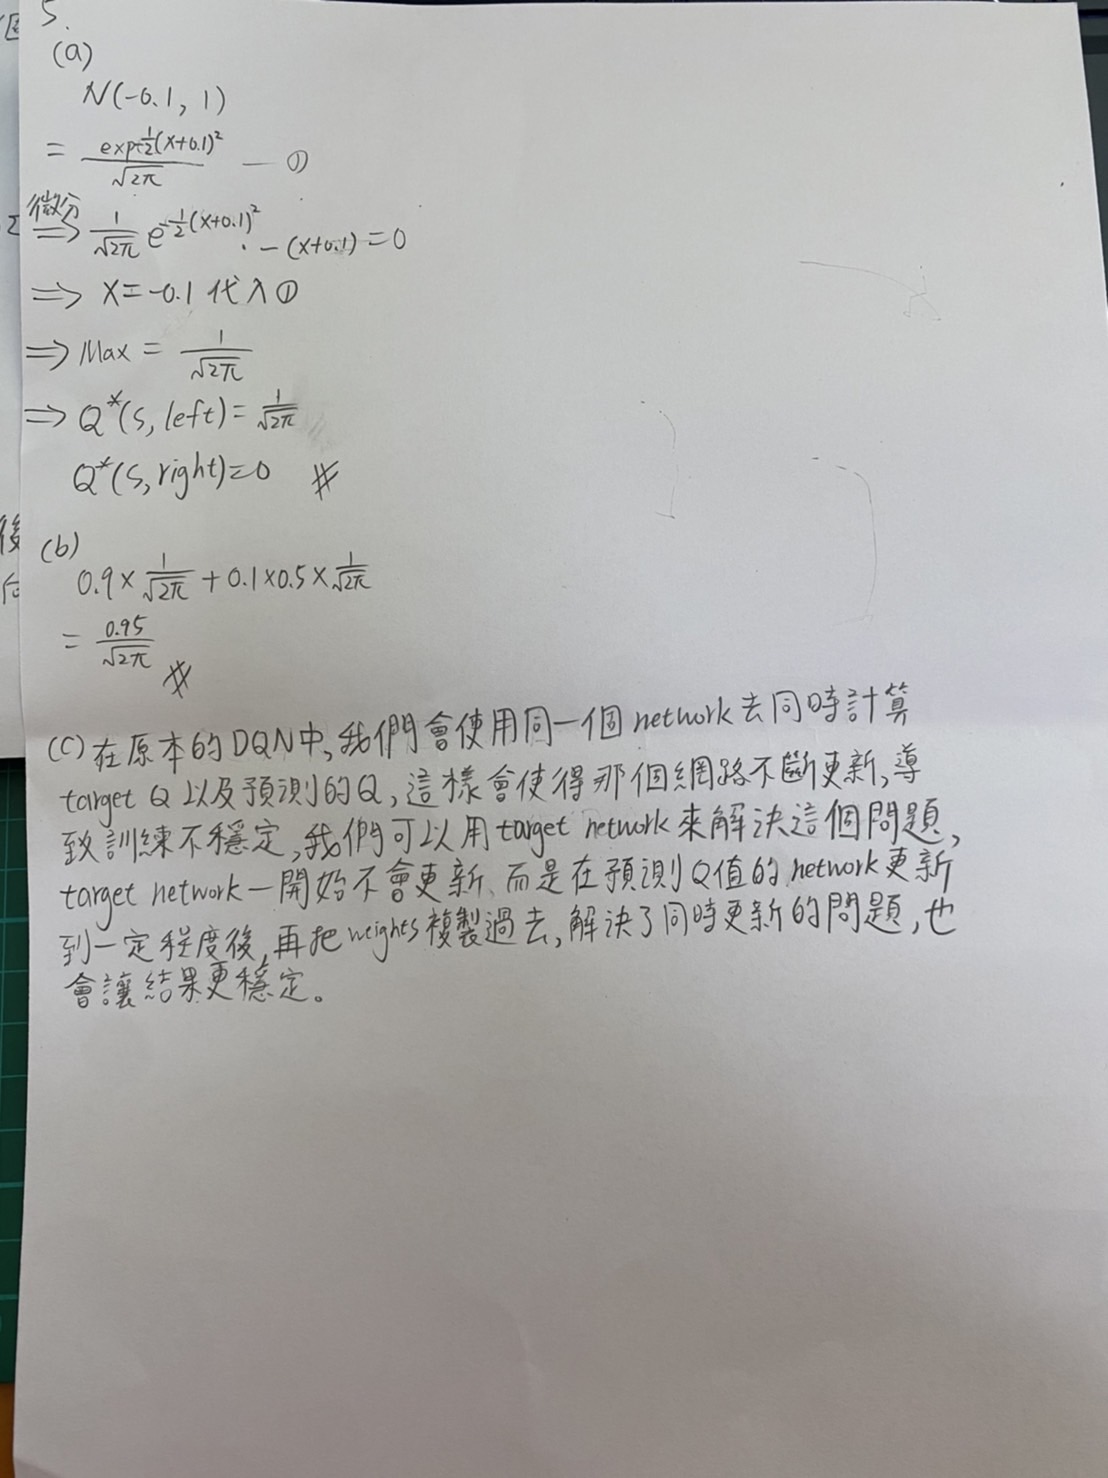 5.
(a)
N(-0.1, 1)
= exp(-1/2(x+0.1)²) / √2π — ①
微分 ⇒ 1/√2π e^-1/2(x+0.1)² · -(x+0.1) = 0
⇒ x = -0.1 代入①
⇒ Max = 1/√2π
⇒ Q*(s, left) = 1/√2π
Q*(s, right) = 0 #
(b)
0.9 × 1/√2π + 0.1×0.5× 1/√2π
= 0.95/√2π #
(c) 在原本的DQN中,我們會使用同一個network去同時計算
target Q 以及預測的Q,這樣會使得那個網路不斷更新,導
致訓練不穩定,我們可以用target network來解決這個問題,
target network一開始不會更新、而是在預測Q值的network更新
到一定程度後,再把weights複製過去,解決了同時更新的問題,也
會讓結果更穩定。
後